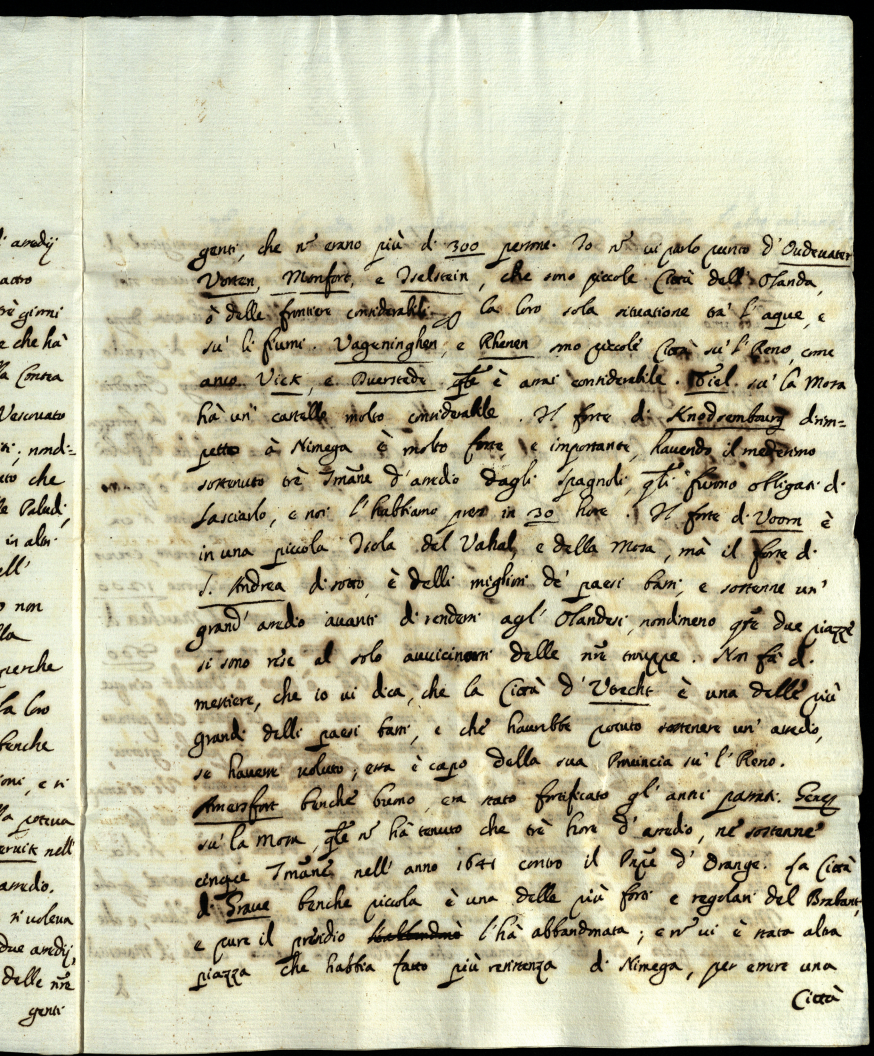 genti, che nõ erano più di 300 persone. Io nõ vi parlo punto d' Oudevater
Vorten, Monfort, e Iselstein, che sono piccole Città dell' Olanda,
ò delle frontiere considerabili la loro sola situatione trà l' aque, e
sù li fiumi. Vageninghen, e Rhenen sono piccole Città sù 'l Reno, come
anco Vick, e Duerstede qle è assai considerabile. Tiel sù la Mosa
hà un' castello molto considerabile. Il forte di Knodsembourg dirim=
petto à Nimega è molto forte, e importante, havendo il medesimo
sostenuto trè Smãne d' assedio dagli Spagnoli, qli furono obligati di
lasciarlo, e noi l' habbiamo preso in 30 hore. Il forte di Voorn è
in una piccola Isola del Vahal, e della Mosa, mà il forte di
S. Andrea di sotto, è delli migliori de' paesi bassi, e sostenne un'
grand' assedio avanti di rendersi agl' Olandesi, nondimeno qste due piazze
si sono rese al solo avvicinarsi delle nre truppe. Non fà di
mestiere, che io vi dica, che la Città d' Utrecht è una delle più
grandi delli paesi bassi, e che haverebbe potuto sostenere un' assedio,
se havesse voluto, essa è capo della sua Provincia sù 'l Reno.
Amersfort benche buono, era stato fortificato gl' anni passati. Genep
sù la Mosa, qle nõ hà tenuto che trè hore d' assedio, ne sostenne
cinque Smãne nell' anno 1641 contro il Pnpe d' Orange. La Città
di Grave benche piccola è una delle più forti e regolari del Brabant,
e pure il presidio l' hà abbandonata; e nõ vi è stata altra
piazza che habbia fatto più resistenza di Nimega, per essere una
Città
l' assedij
trè giorni
e che hà
la Contea
Vescovato
nondi=
che
Paludi,
in altri
ell'
non
lla
perche
la loro
benche
e si
poteva
nell'
assedio.
si voleva
due assedij,
delle nre
genti